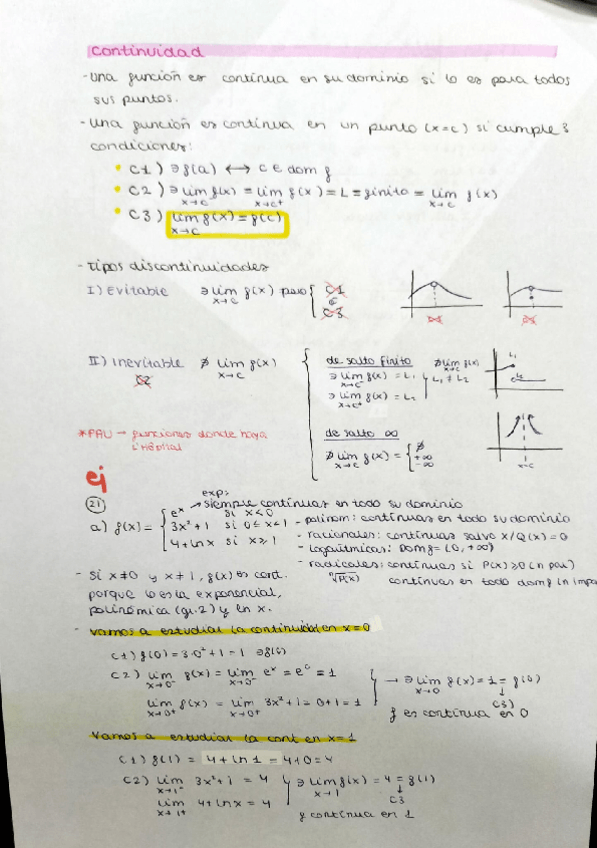 continuidad
- Una función es continua en su dominio si lo es para todos
sus puntos.
- Una función es continua en un punto (x=c) si cumple 3
condiciones:
• C1) ∃f(a) ⟷ c ∈ dom f
• C2) ∃ lim x→c f(x) = lim x→c⁺ f(x) = L = finito = lim x→c f(x)
• C3) lim x→c f(x) = f(c)
- Tipos discontinuidades
I) Evitable ∃ lim x→c f(x) pero { C1 o C3
II) Inevitable ∄ lim x→c f(x)
C2
de salto finito ∄ lim f(x)
∃ lim x→c⁻ f(x) = L₁
∃ lim x→c⁺ f(x) = L₂
L₁ ≠ L₂
L₁
L₂
de salto ∞
∄ lim x→c f(x) = { ∄ +∞ -∞
x=c
*PAU → funciones donde haya
L'Hôpital
ej
21
exp:
→ siempre continuas en todo su dominio
a) f(x) = { eˣ si x<0
3x²+1 si 0≤x<1
4+ln x si x≥1
- polinom: continuas en todo su dominio
- racionales: continuas salvo x/Q(x)=0
- logarítmicas: Dom f = (0, +∞)
- radicales: continuas si P(x)≥0 (n par)
ⁿ√P(x) continuas en todo dom f (n impa
- Si x≠0 y x≠1, f(x) es cont.
porque lo es la exponencial,
polinómica (gr.2) y ln x.
- Vamos a estudiar la continuidad en x=0
C1) f(0) = 3·0²+1 = 1 ∃f(0)
C2) lim x→0⁻ f(x) = lim x→0⁻ eˣ = e⁰ = 1
lim x→0⁺ f(x) = lim x→0⁺ 3x²+1 = 0+1 = 1
→ ∃ lim x→0 f(x) = 1 = f(0)
C3)
f es continua en 0
Vamos a estudiar la cont en x=1
C1) f(1) = 4+ln 1 = 4+0 = 4
C2) lim x→1⁻ 3x²+1 = 4
lim x→1⁺ 4+ln x = 4
∃ lim x→1 f(x) = 4 = f(1)
C3
f continua en 1